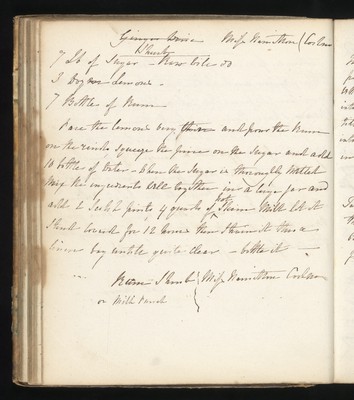 Ginger Wine Miss Hamilton
Shrub
7 lb of Sugar
3 Dozen Lemons -
7 Bottles of Rum -
Pare the Lemons very thin and pour the Rum
on the rinds Squeeze the juice on the Sugar and add
10 bottles of Water - When the Sugar is thoroughly Melted
Mix the ingredients All together in a large jar and
add 2 Scotch pints 4 quarts of Milk let it
Stand for 12 hours then Strain it thro a
linen bag untill quite clear - bottle it -
Rum Shrub Miss Hamilton
or Milk Punch